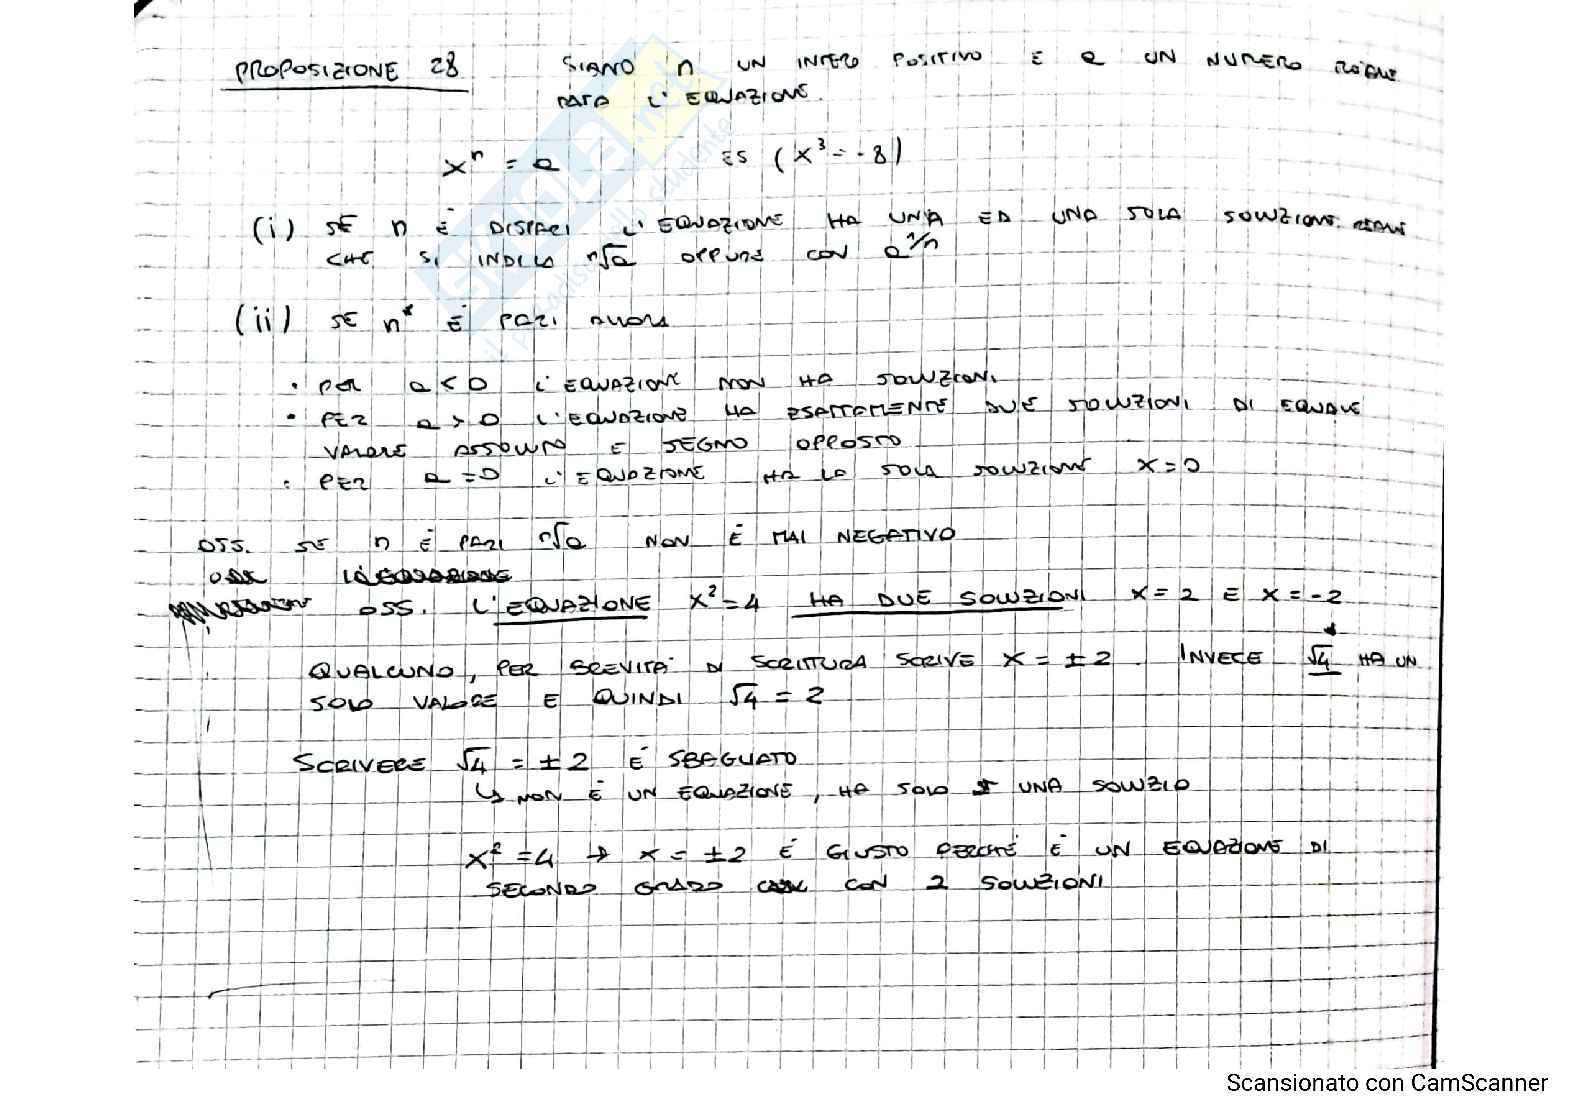 PROPOSIZIONE 28 SIANO n UN INTERO POSITIVO E a UN NUMERO REALE
DATA L'EQUAZIONE.
xⁿ = a ES (x³ = -8)
(i) SE n È DISPARI L'EQUAZIONE HA UNA ED UNA SOLA SOLUZIONE REALE
CHE SI INDICA ⁿ√a OPPURE CON a^1/n
(ii) SE n È PARI ALLORA
• PER a < 0 L'EQUAZIONE NON HA SOLUZIONI
• PER a > 0 L'EQUAZIONE HA ESATTAMENTE DUE SOLUZIONI DI EGUALE
VALORE ASSOLUTO E SEGNO OPPOSTO
• PER a = 0 L'EQUAZIONE HA LA SOLA SOLUZIONE X = 0
OSS. SE n È PARI ⁿ√a NON È MAI NEGATIVO
OSS. L'EQUAZIONE x² = 4 HA DUE SOLUZIONI X = 2 E X = -2
QUALCUNO, PER BREVITA' DI SCRITTURA SCRIVE X = ±2. INVECE √4 HA UN
SOLO VALORE E QUINDI √4 = 2
SCRIVERE √4 = ±2 È SBAGLIATO
↳ NON È UN EQUAZIONE, HA SOLO UNA SOLUZIO
x² = 4 → x = ±2 È GIUSTO PERCHÉ È UN EQUAZIONE DI
SECONDO GRADO CON 2 SOLUZIONI
Scansionato con CamScanner